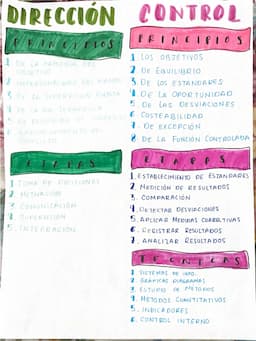 DIRECCIÓN
PRINCIPIOS
1. DE LA
OBJETIVO
2. IMPERSONALIDAD DEL MANDO
3. DE LA SUPERVISIÓN DIRECTA
4. DE LA VÍA JERÁRQUICA
5. DE RESOLUCIÓN DE
6. APROVECHAMIENTO DEL
ETAPAS
1. TOMA DE DECISIONES
2. MOTIVACIÓN
3. COMUNICACIÓN
4. SUPERVISIÓN
5. INTEGRACIÓN
CONTROL
PRINCIPIOS
1. LOS OBJETIVOS
2. DE EQUILIBRIO
3. DE LOS ESTÁNDARES
4. DE LA OPORTUNIDAD
5. DE LAS DESVIACIONES
6. COSTEABILIDAD
7. DE EXCEPCIÓN
8. DE LA FUNCIÓN CONTROLADA
ETAPAS
1. ESTABLECIMIENTO DE ESTÁNDARES
2. MEDICIÓN DE RESULTADOS
3. COMPARACIÓN
4. DETECTAR DESVIACIONES
5. APLICAR MEDIDAS CORRECTIVAS
6. REGISTRAR RESULTADOS
7. ANALIZAR RESULTADOS
TÉCNICAS
1. SISTEMAS DE INFO.
2. GRÁFICAS DIAGRAMAS
3. ESTUDIO DE MÉTODOS
4. MÉTODOS CUANTITATIVOS
5. INDICADORES
6. CONTROL INTERNO